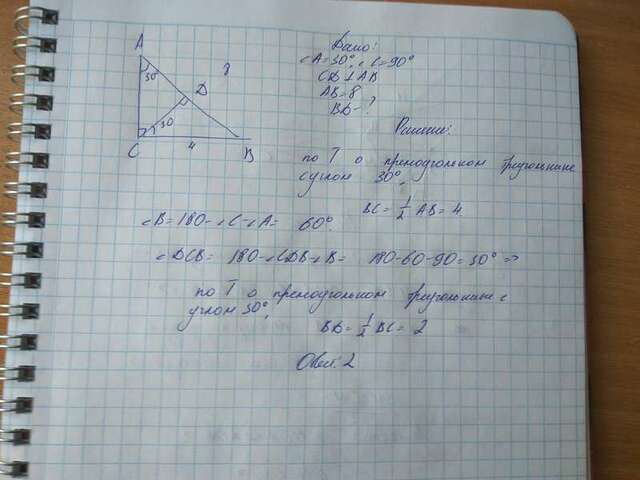 A
30
8
D
30
C
4
B
Дано:
∠A=30°, ∠C=90°
CD⊥AB
AB=8
BD-?
Решение:
по Т о прямоугольном треугольнике
с углом 30°,
BC=1/2 AB=4
∠B=180-∠C-∠A= 60°.
∠DCB= 180-∠CDB-∠B= 180-60-90=30° =>
по Т о прямоугольном треугольнике с
углом 30°,
BD=1/2 BC=2
Ответ: 2